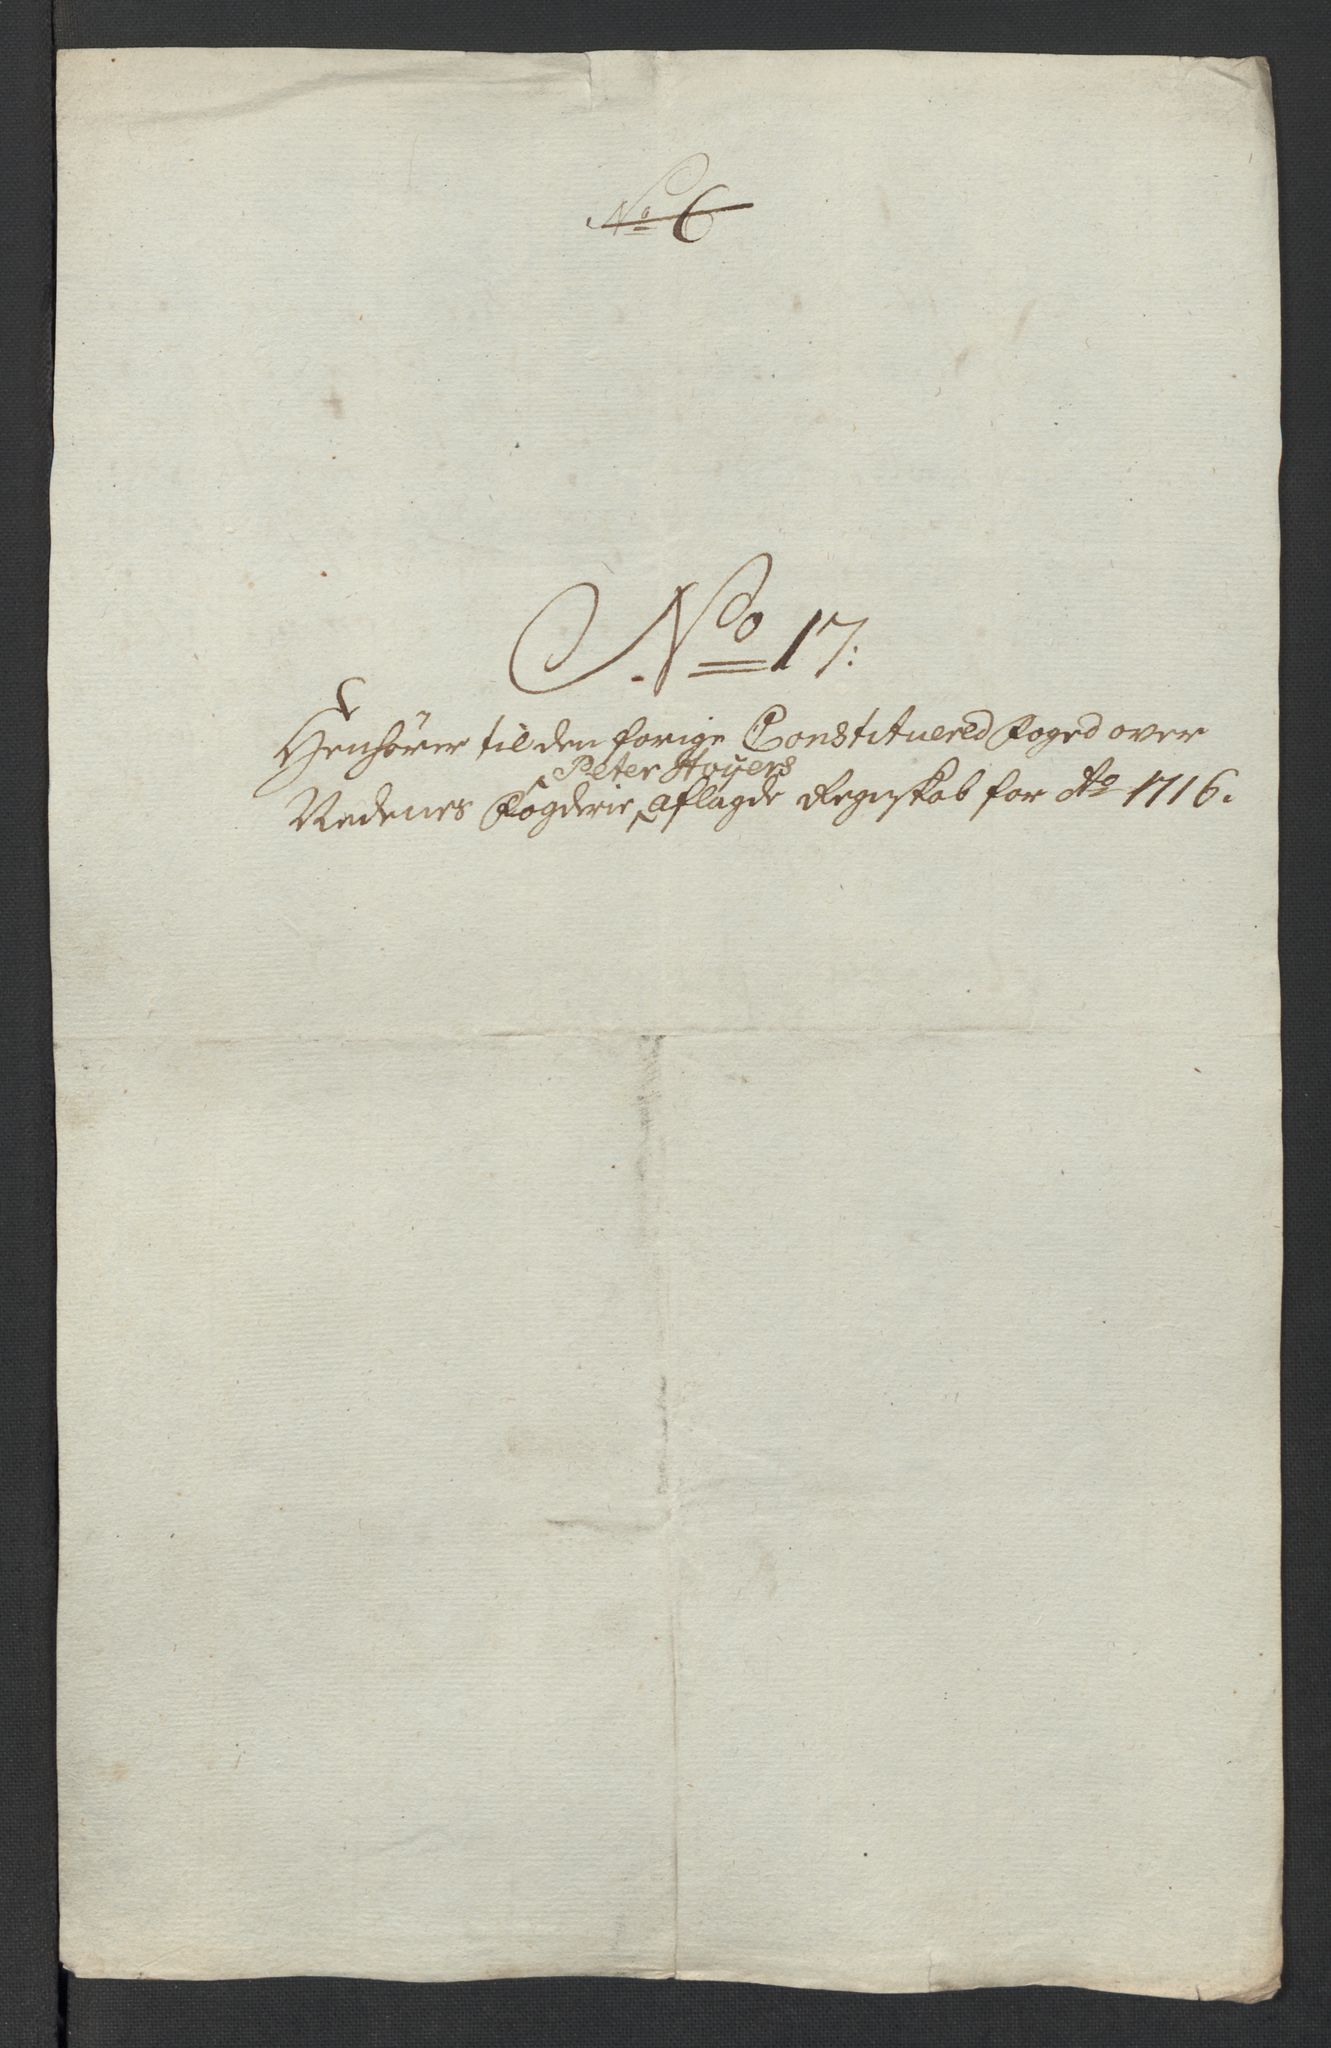 No 6
No 17:
Henhörer til den forige Constituered Foged over
Peter Hoÿers
Nedenes Fogderie, aflagde Regnskab for Ao 1716.